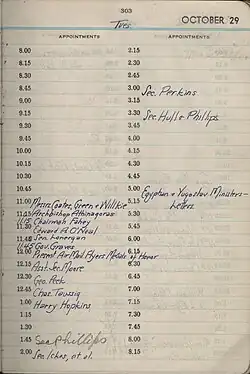 303
Tues.
OCTOBER 29
APPOINTMENTS
8.00
8.15
8.30
8.45
9.00
9.15
9.30
9.45
10.00
10.15
10.30
10.45
11.00 Messrs. Coates, Green & Willkie
11.15 Archbishop Athinagoras
11.15 Chairman Fahey
11.30 Edward A. O'Neal
11.45 Sen. Lonergan
11.45 Gov. Graves
12.00 Present Air Mail Flyers Medal of Honor
12.15 Asst. Sec. Moore
12.30 Geo. Peek
12.45 Chas. Taussig
1.00 Harry Hopkins
1.15
1.30
1.45 Sec Phillips
2.00 Sec. Ickes, et. al.
APPOINTMENTS
2.15
2.30
2.45
3.00 Sec. Perkins
3.15
3.30 Sec. Hull & Phillips
3.45
4.00
4.15
4.30
4.45
5.00 Egyptian & Yugoslav Ministers -
5.15 Letters
5.30
5.45
6.00
6.15
6.30
6.45
7.00
7.15
7.30
7.45
8.00
8.15